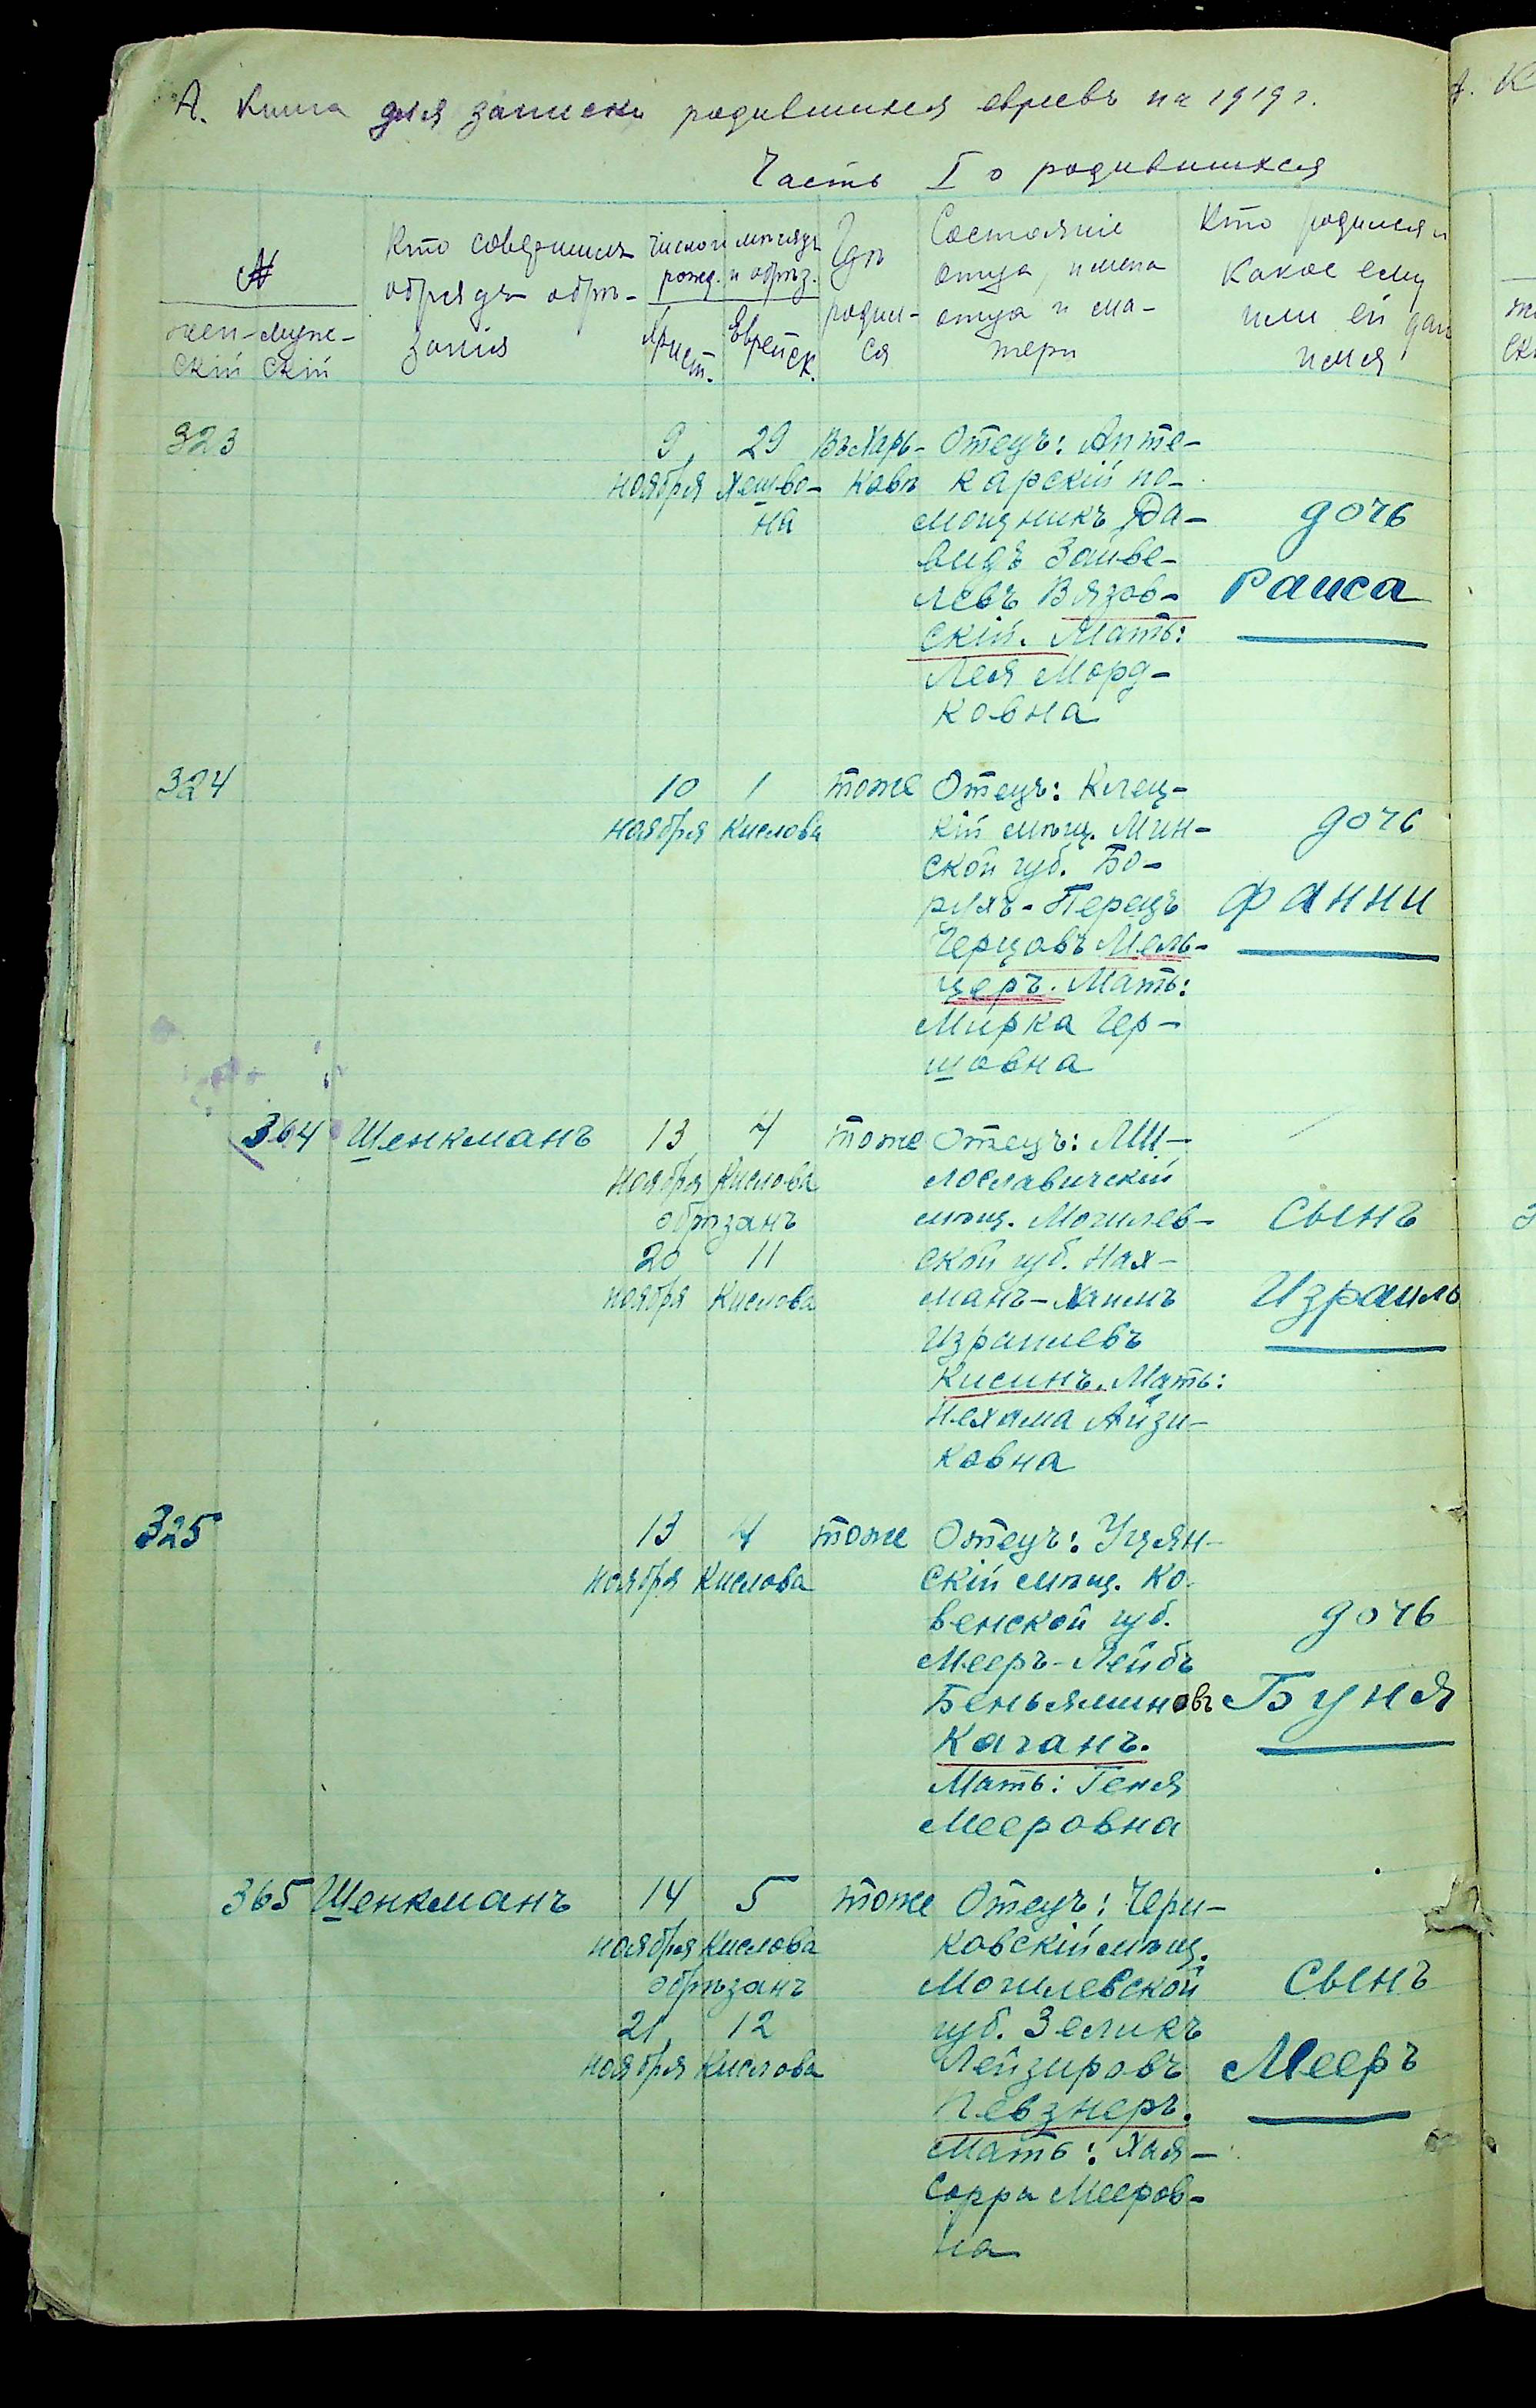 А. Книга для записи родившихся евреевъ на 1919 г.
Часть I о родившихся
№
жен-
скій
муже-
скій
Кто совершилъ
обрядъ обрѣ-
занія
Число и мѣсяцъ
рожд. и обрѣз.
Христ.
Еврейск.
Гдѣ
родил-
ся
Состояніе
отца, имена
отца и ма-
тери
Кто родился и
какое ему
или ей дан
имя
323
9
ноября
29
Хешво-
на
Въ Харь-
ковѣ
Отецъ: Апте-
карскій по-
мощникъ Да-
видъ Занве-
левъ Вязов-
скій. Мать:
Лея Морд-
ковна
дочь
Раиса
324
10
ноября
1
Кислова
тоже
Отецъ: Клец-
кій мѣщ. Мин-
ской губ. Бо-
рухъ-Перецъ
Герцовъ Мель-
церъ. Мать:
Мирка Гер-
шовна
дочь
Фанни
364
Шенкманъ
13
ноября
4
Кислова
обрѣзанъ
20
ноября
11
Кислова
тоже
Отецъ: Ми-
лославичскій
мѣщ. Могилев-
ской губ. Нах-
манъ-Хаимъ
Израилевъ
Кисинъ. Мать:
Нехама Айзи-
ковна
сынъ
Израиль
325
13
ноября
4
Кислова
тоже
Отецъ: Уцян-
скій мѣщ. Ко-
венской губ.
Мееръ-Лейбъ
Беньяминовъ
Каганъ.
Мать: Геня
Мееровна
дочь
Буня
365
Шенкманъ
14
ноября
5
Кислова
обрѣзанъ
21
ноября
12
Кислова
тоже
Отецъ: Чери-
ковскій мѣщ.
Могилевской
губ. Зеликъ
Лейзеровъ
Певзнеръ.
Мать: Хая-
Сорра Мееров-
на
сынъ
Мееръ